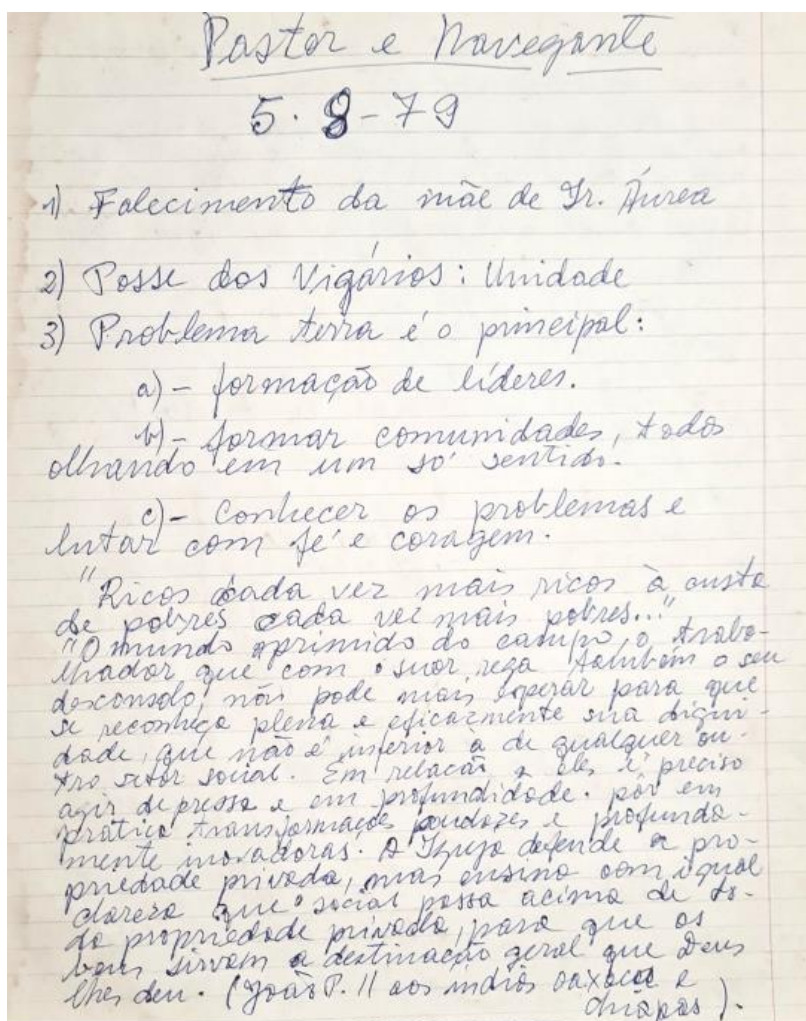 Pastor e Navegante
5.8-79
1) Falecimento da mãe de Ir. Áurea
2) Posse dos Vigários: Unidade
3) Problema terra é o principal:
a) - formação de líderes.
b) - formar comunidades, todos
olhando em um só sentido.
c) - Conhecer os problemas e
lutar com fé e coragem.
"Ricos cada vez mais ricos à custa
de pobres cada vez mais pobres..."
"O mundo oprimido do campo, o traba-
lhador que com o suor rega também o seu
desconsolo, não pode mais esperar para que
se reconheça plena e eficazmente sua digni-
dade, que não é inferior à de qualquer ou-
tro setor social. Em relação a eles é preciso
agir depressa e em profundidade. pôr em
prática transformações audazes e profunda-
mente inovadoras. A Igreja defende a pro-
priedade privada, mas ensina com igual
clareza que o social passa acima de to-
da propriedade privada, para que os
bens sirvam a destinação geral que Deus
lhes deu. (João P. II aos índios oaxaca e
chiapas).